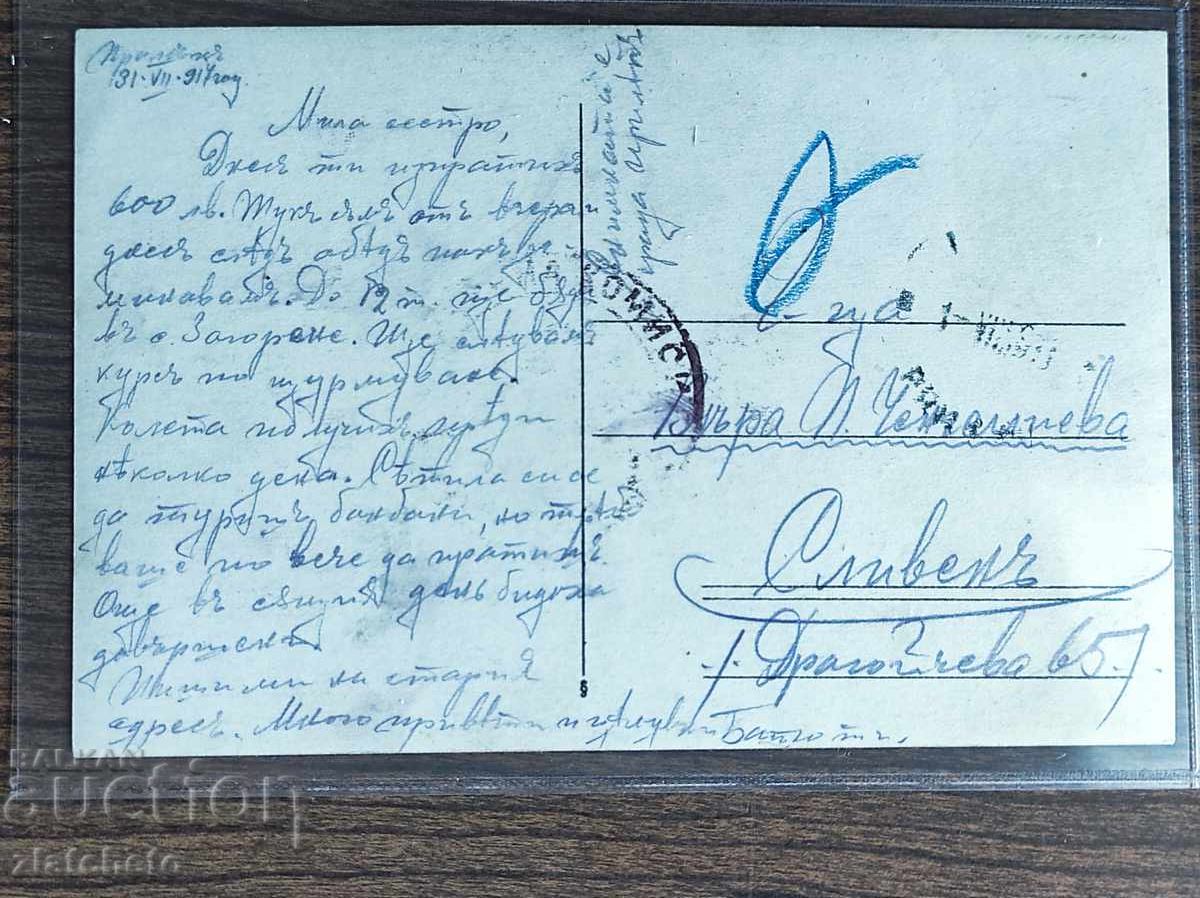 31·VII·917 год.
Мила сестро,
Днесъ ти изпратихъ
600 лв. Тукъ съмъ отъ вчера и
днесъ слѣдъ обѣдъ
минавамъ. До 12 т. ще бѫда
въ с. Загорене. Ще слѣдвамъ
курсъ по щурмуване.
Колета получихъ преди
нѣколко дена. Сѣтила си се
да туришъ бонбони, но трѣб
ваше по вече да пратишъ.
Още въ сѫщия день бидоха
довършени.
Пиши ми на стария
адресъ. Много привѣти и цѣлувки Батьо ти.
г-ца
Вѣра П.
Сливенъ
/Драгойчева 65/
КОМИСИ
BALKAN
auction
zlatcheto